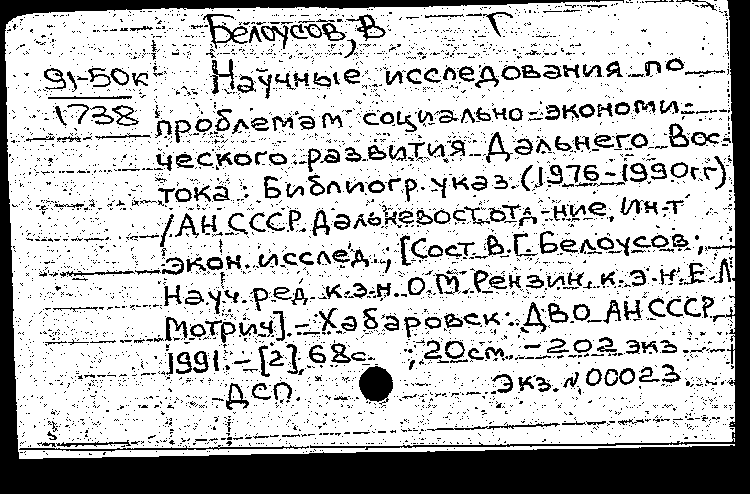 Белоусов, В Г
91-50к
1738
Научные исследования по
проблемам социально-экономи-
ческого развития Дальнего Вос-
тока: Библиогр. указ. (1976-1990гг)
/АН СССР. Дальневост. отд-ние, Ин-т
экон. исслед.; [Сост В.Г. Белоусов;
Науч. ред к.э.н. О.М Рензин, к.э.н Е.Л
Мотрич]. – Хабаровск: ДВО АН СССР,
1991. – [2], 68с. ; 20см. – 202 экз
ДСП. Экз. N 00023